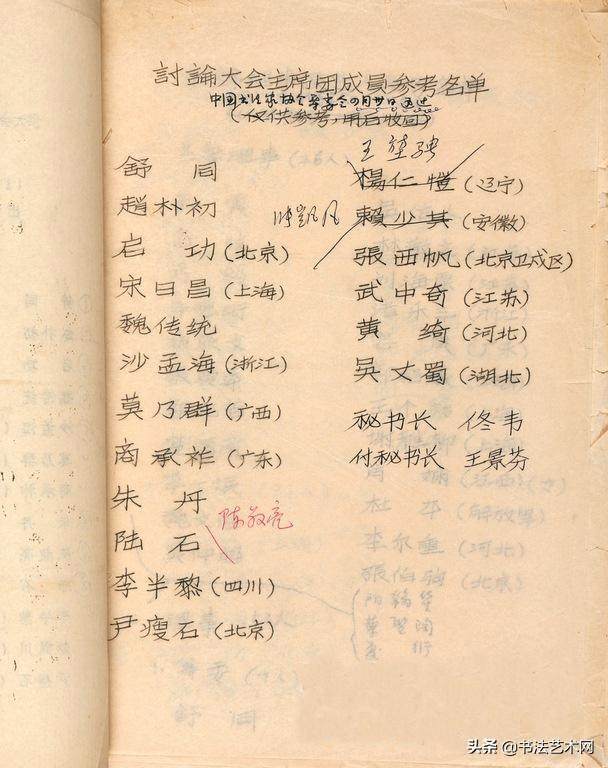 討論大会主席团成員参考名单
中国书法家协会筹委会四月廿日通过
(仅供参考,用后收回)
舒同
趙朴初
启功(北京)
宋日昌(上海)
魏传统
沙孟海(浙江)
莫乃群(广西)
商承祚(广东)
朱丹
陆石
陈叔亮
李半黎(四川)
尹瘦石(北京)
王楚骋
楊仁愷(辽宁)
賴少其(安徽)
張西帆(北京卫戍区)
武中奇(江苏)
黄绮(河北)
吳丈蜀(湖北)
秘书长 佟韦
付秘书长 王景芬
杜平(解放軍)
李尔重(河北)
張伯驹(北京)
舒同
头条 @书法艺术网